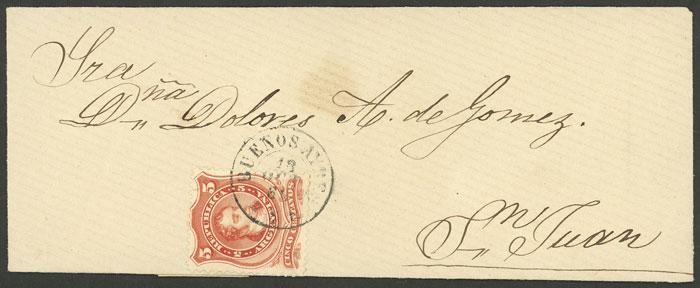 Sra
Dñª Dolores A. de Gomez.
Sⁿ Juan
BUENOS AIRES
5 REPUBLICA 5
ARGENTINA
CINCO CENTAVOS